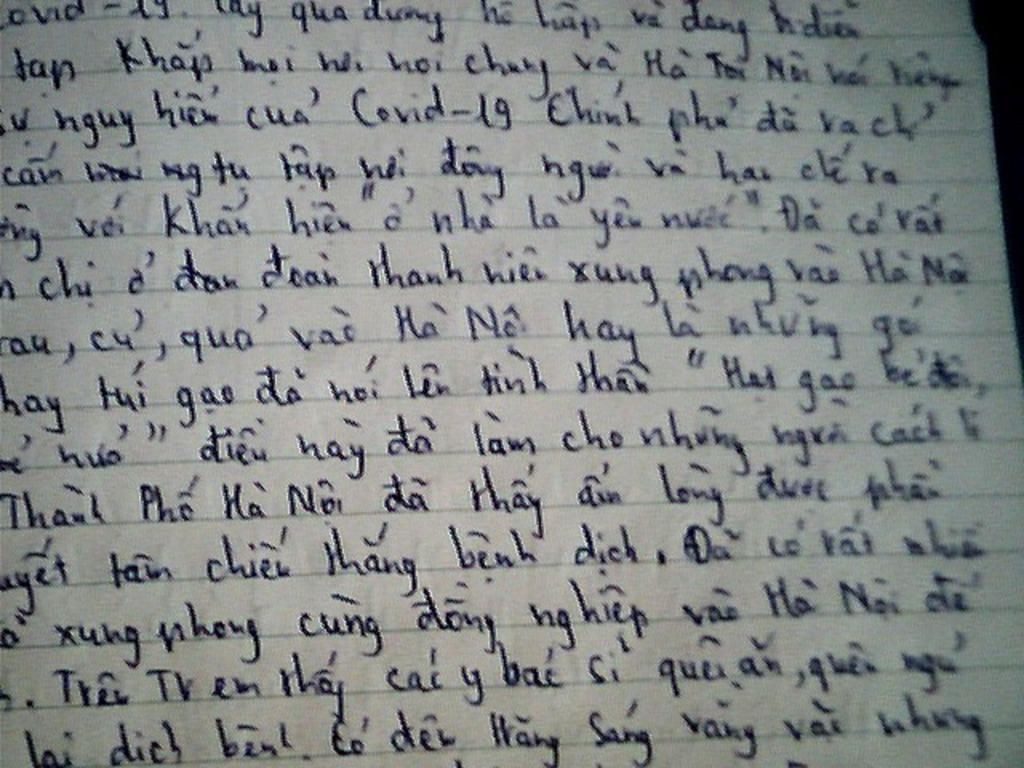 ovid-19. lây qua đường hô hấp và đang
tạp khắp mọi nơi nói chung và Hà Nội nói riêng
nguy hiểm của Covid-19 Chính phủ đã ra chỉ
cấm tụ tập nơi đông người và hạn chế ra
với khẩu hiệu "ở nhà là yêu nước". Đã có rất
chị ở đan đoàn thanh niên xung phong vào Hà Nội
rau, củ, quả vào Hà Nội hay là những gói
hay túi gạo đã nói lên tinh thần "Hạt gạo bẻ đôi,
điều này đã làm cho những người cách li
Thành Phố Hà Nội đã thấy ấm lòng được phần
uyết tâm chiến thắng bệnh dịch. Đã có rất nhiều
xung phong cùng đồng nghiệp vào Hà Nội để
Trên TV em thấy các y bác sĩ quên ăn, quên ngủ
lại dịch bệnh. Có đêm trăng sáng vằng vặc nhưng